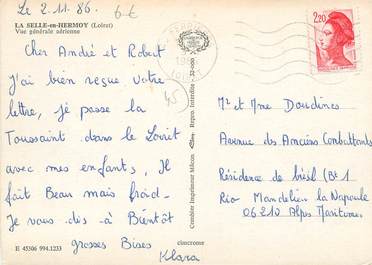 Le 2.11.86.
6€
LA SELLE-en-HERMOY (Loiret)
Vue générale aérienne
Cher André et Robert
J'ai bien reçue votre
lettre, je passe la
Toussaint dans le Loiret
avec mes enfants, Il
fait Beau mais froid.
Je vous dis à Bientôt
grosses Bises
Klara
E 45306 994.1233
cimcrome
45
Combier Imprimeur Mâcon
Repro. Interdite - 32-000
1986
LOIRET
2,20
Mr et Mme Doudines
Avenue des Anciens Combattants
Résidence de (Bt 1
Rio Mandelieu la Napoule
06210 Alpes Maritimes